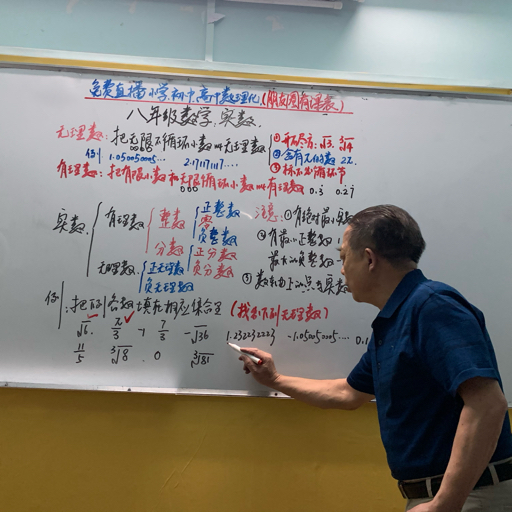 免费直播小学.初中.高中数理化(朋友圈有课表)
八年级数学.实数
无理数:把无限不循环小数叫无理数
①开不尽方:√3. ∛4
例 1.05005005… 2.17117117…
②含有π的数 2π.
③标不出循环节
有理数:把有限小数和无限循环小数叫有理数 0.3 0.27
实数
有理数
整数
正整数
零
负整数
分数
正分数
负分数
无理数
正无理数
负无理数
注意:①有绝对最小实数
②有最小正整数
最大的负整数
③数轴上的点与实数
例:把下列各数填在相应集合里(找出下列无理数)
√6. π/3 7/3 -√36 1.232232223 -1.05005005… 0.
11/5 ∛8 . 0 ∛81